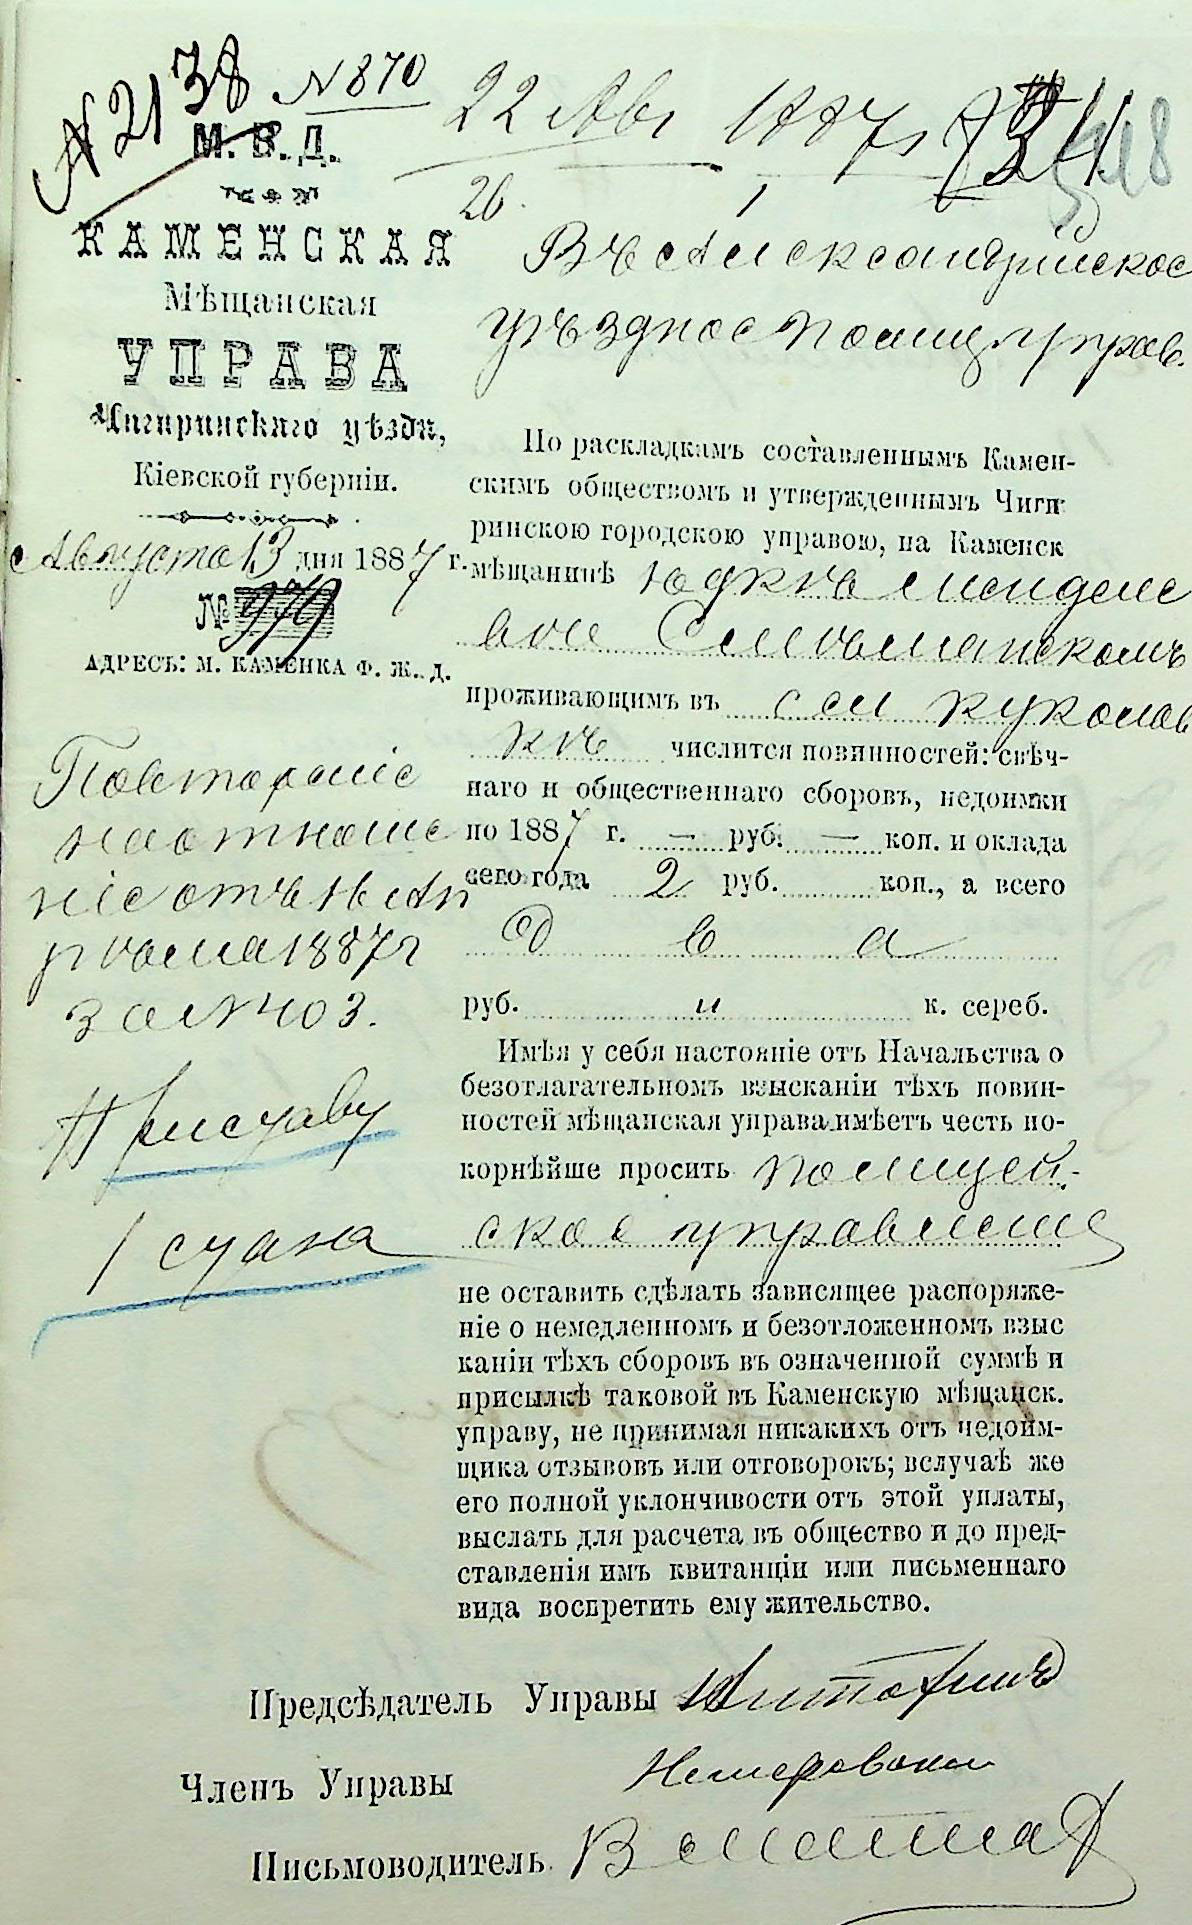 N 2138
N 870
22 Авг 1887 г
26.
М. В. Д.
КАМЕНСКАЯ
Мѣщанская
УПРАВА
Чигиринскаго уѣзда,
Кіевской губерніи.
Августа 13 дня 1887 г.
№ 979
АДРЕСЪ: М. КАМЕНКА Ф. Ж. Д.
Повтореніе
на отноше
ніе отъ 14 Ап
рѣля 1887 г
за № 403.
Въ Александрійское
уѣздное полиц. управ.
По раскладкамъ составленнымъ Камен-
скимъ обществомъ и утвержденнымъ Чиги-
ринскою городскою управою, на Каменск
мѣщанинѣ Юдкѣ Менделе
вом Смѣлянскомъ
проживающимъ въ сел Куколов
кѣ числится повинностей: свѣч-
наго и общественнаго сборовъ, недоимки
по 1887 г. — руб. — коп. и оклада
сего года 2 руб. коп., а всего
два
руб. и к. сереб.
Имѣя у себя настояніе отъ Начальства о
безотлагательномъ взысканіи тѣхъ повин-
ностей мѣщанская управа имѣетъ честь по-
корнѣйше просить полицей-
ское управление
не оставить сдѣлать зависящее распоряже-
ніе о немедленномъ и безотложенномъ взыс
каніи тѣхъ сборовъ въ означенной суммѣ и
присылкѣ таковой въ Каменскую мѣщанск.
управу, не принимая никакихъ отъ недоим-
щика отзывовъ или отговорокъ; вслучаѣ же
его полной уклончивости отъ этой уплаты,
выслать для расчета въ общество и до пред-
ставленія имъ квитанціи или письменнаго
вида воспретить ему жительство.
Предсѣдатель Управы
Членъ Управы
Письмоводитель